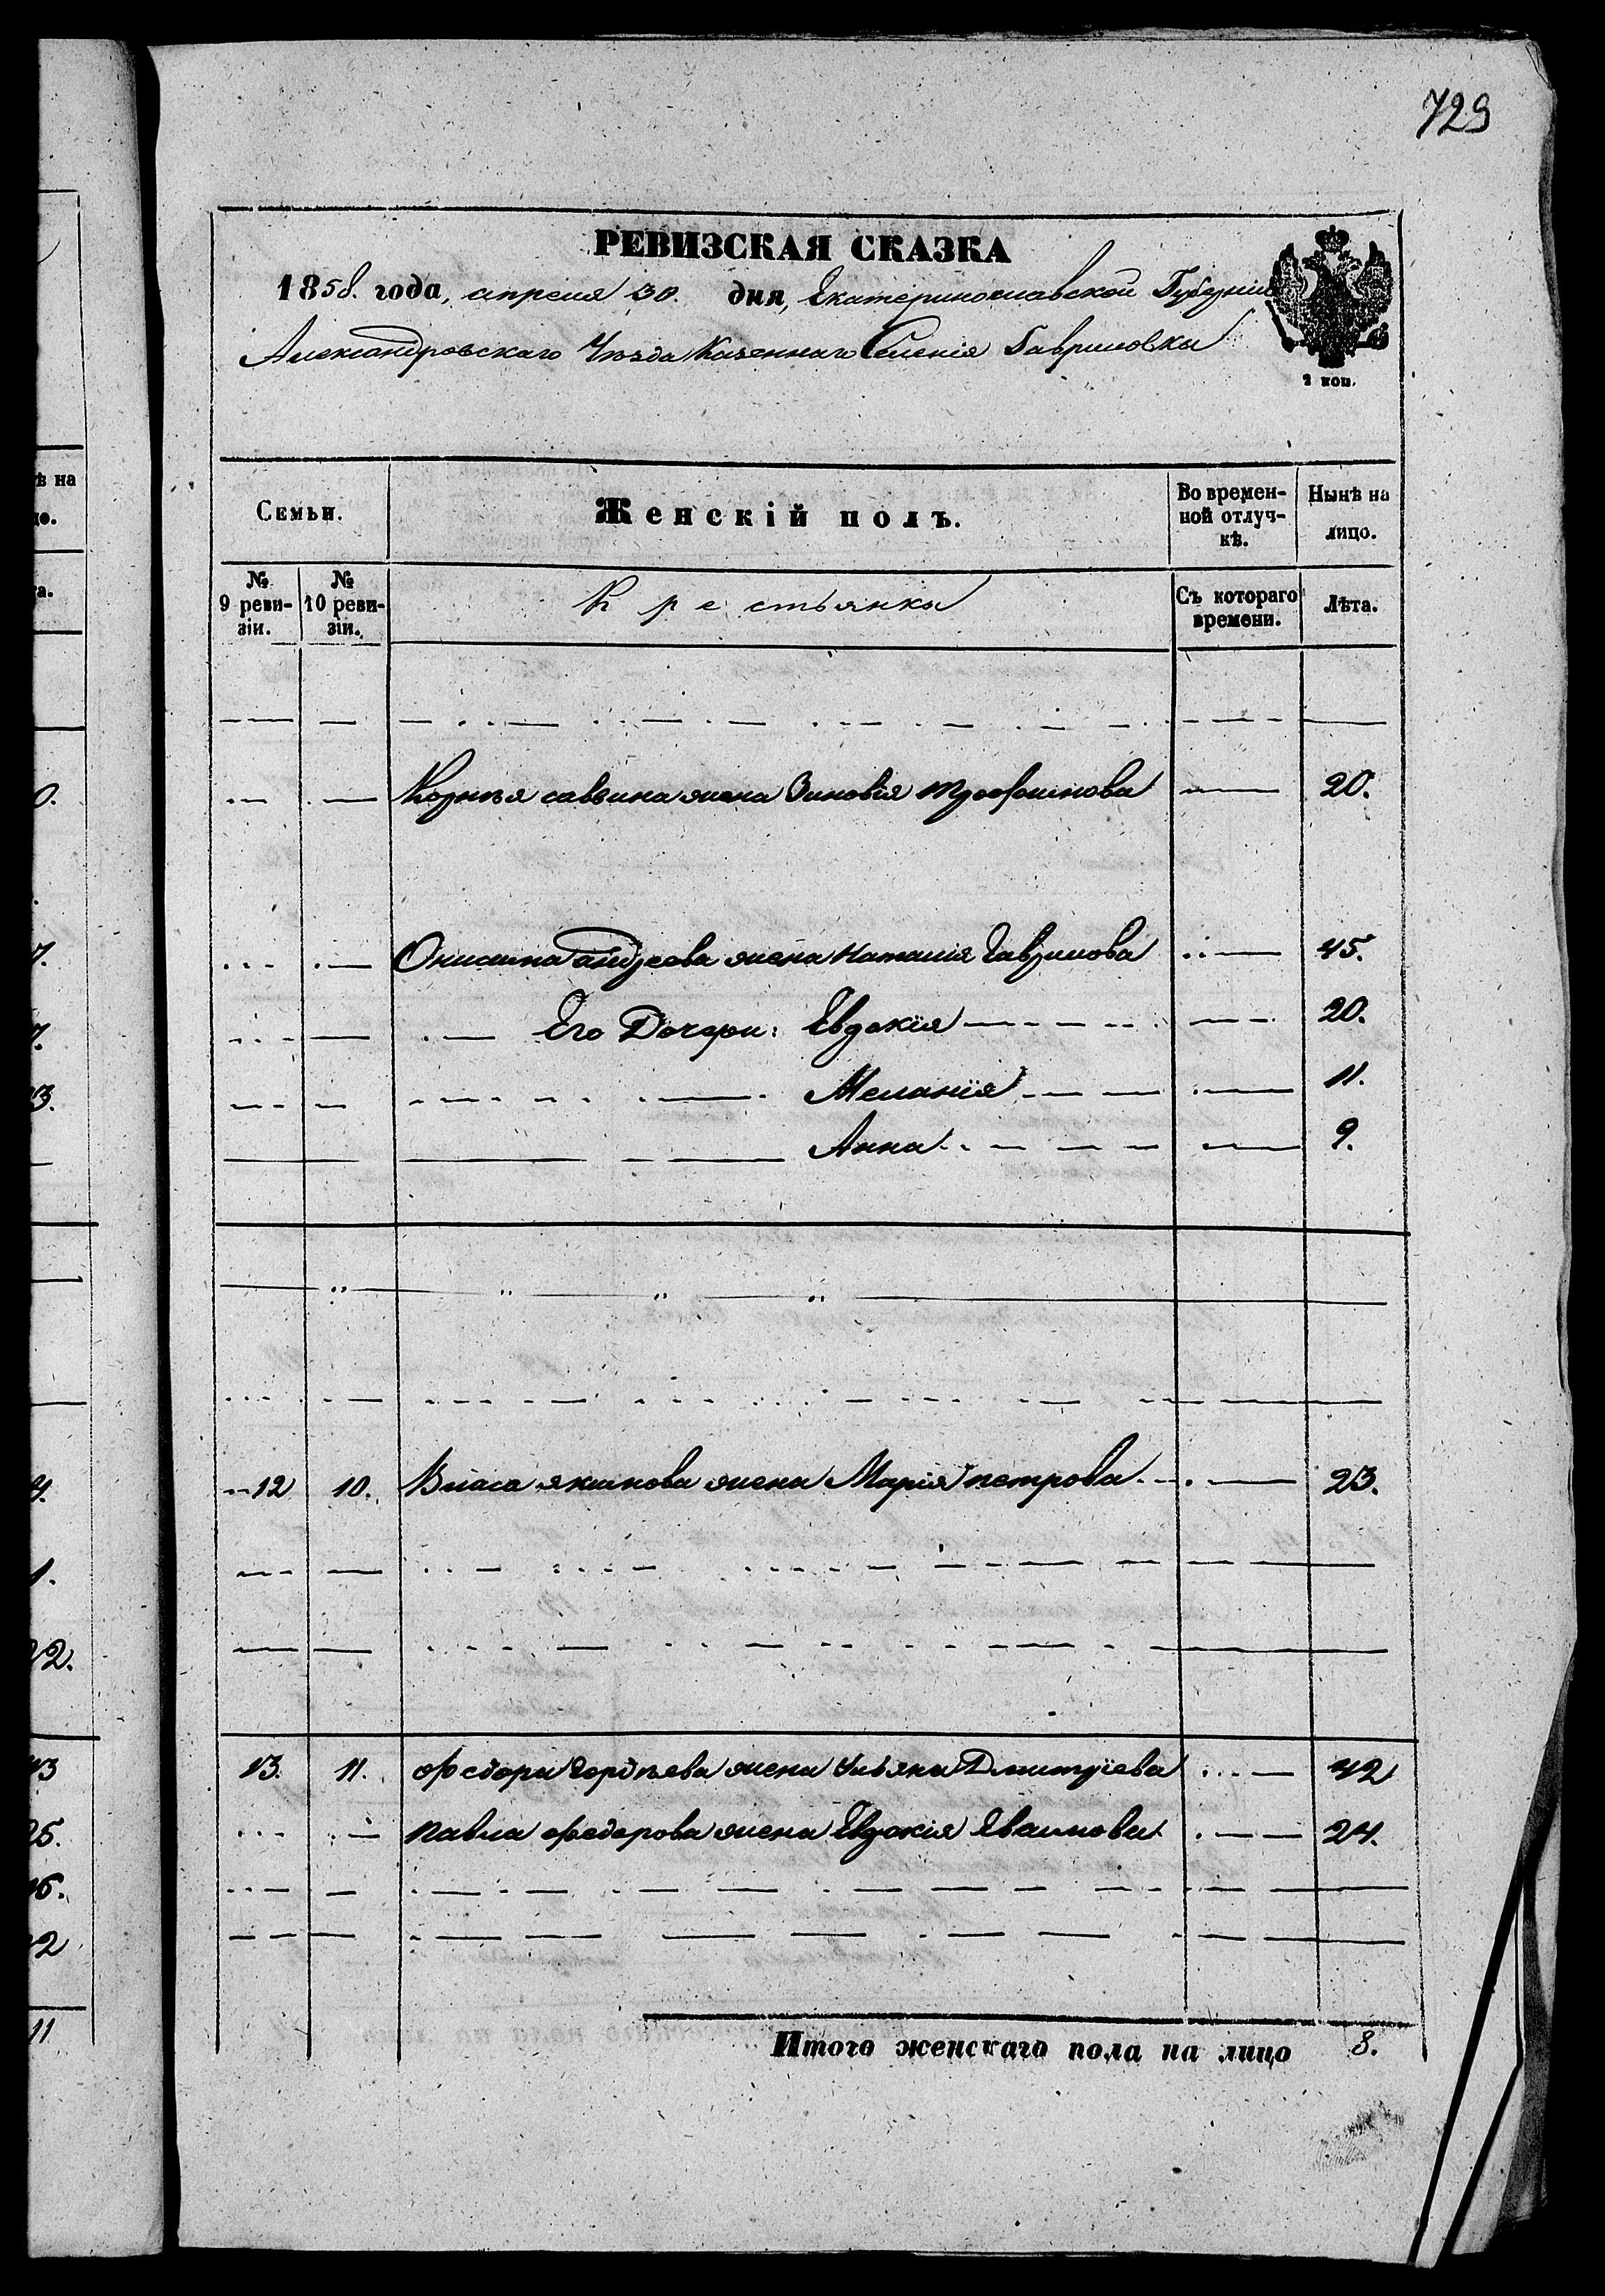 729
РЕВИЗСКАЯ СКАЗКА
1858. года, апреля 30. дня, Екатеринославской Губерніи
Александровскаго Уѣзда Казеннаго Селенія Гавриловки
2 коп.
Семьи. Женскій полъ. Во времен-ной отлуч-кѣ. Нынѣ на лицо.
№ 9 реви-зіи. № 10 реви-зіи. Крестьянки Съ котораго времени. Лѣта.
Корнѣя саввина жена Зиновія трофимова 20.
Онисима андреева жена Наталія Гаврилова 45.
Его Дочери: Евдокія 20.
Меланія 11.
Анна 9.
12 10. Власа якимова жена Марія петрова 23.
13. 11. федора Гордѣева жена Ульяна Дмитріева 42
павла федорова жена Евдокія 24.
Итого женскаго пола на лицо 8.
ѣ на
0.
7.
7.
3.
4.
1.
22.
13
25.
2
11